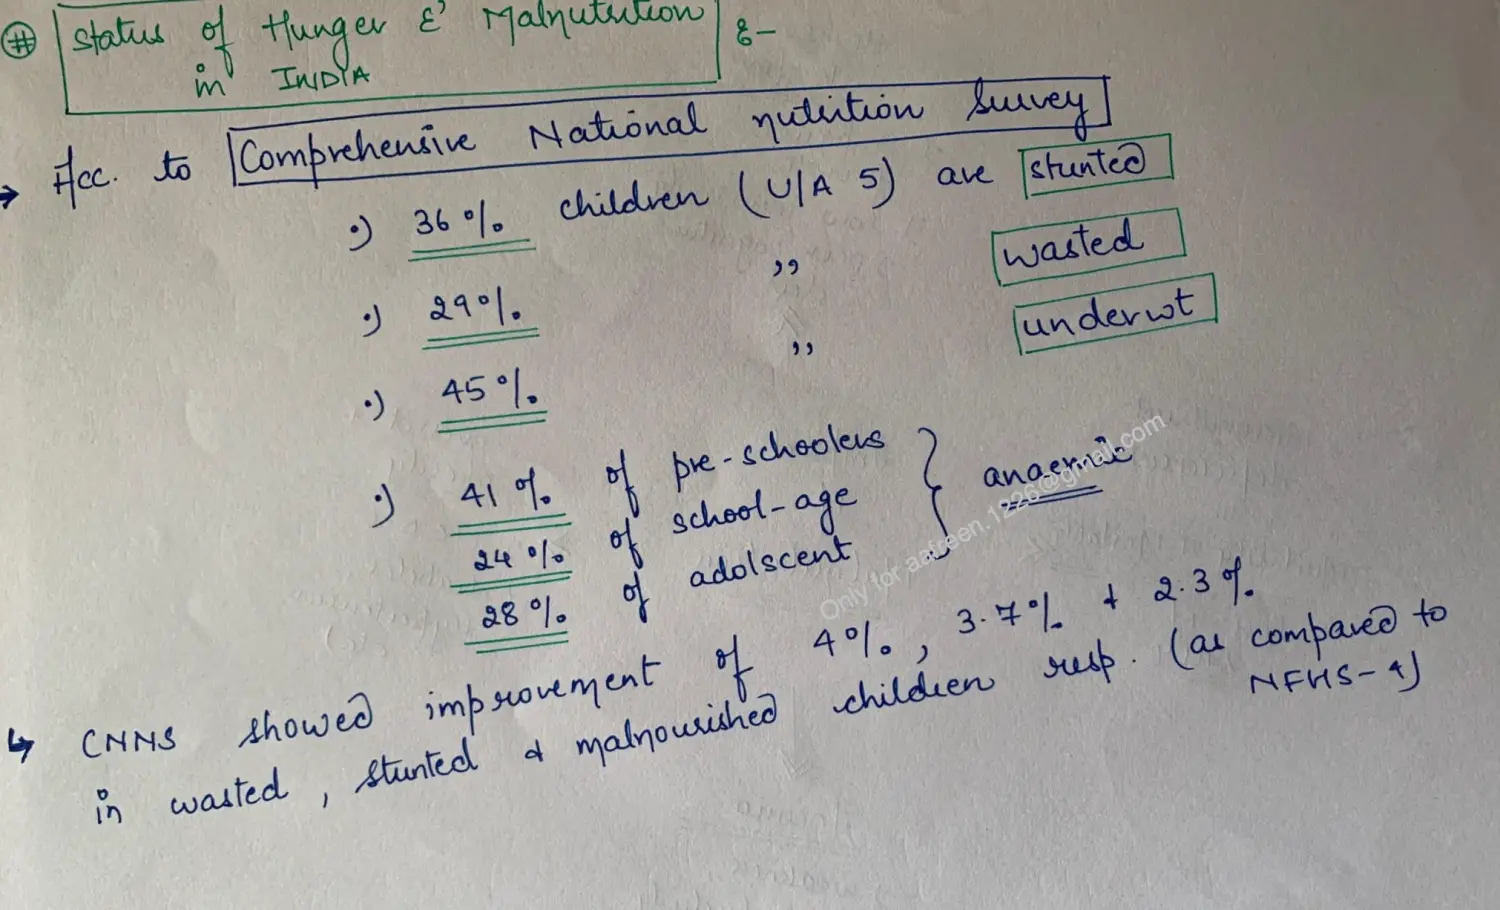 # Status of Hunger & Malnutrition :-
in INDIA
→ Acc. to Comprehensive National nutrition Survey
•) 36% children (U/A 5) are stunted
•) 29% ,, wasted
•) 45% ,, underwt
•) 41% of pre-schoolers
24% of school-age } anaemic
28% of adolscent
↳ CNNS showed improvement of 4%, 3.7% & 2.3%
in wasted, stunted & malnourished children resp. (as compared to
NFHS-4)
Only for aafreen.1226@gmail.com